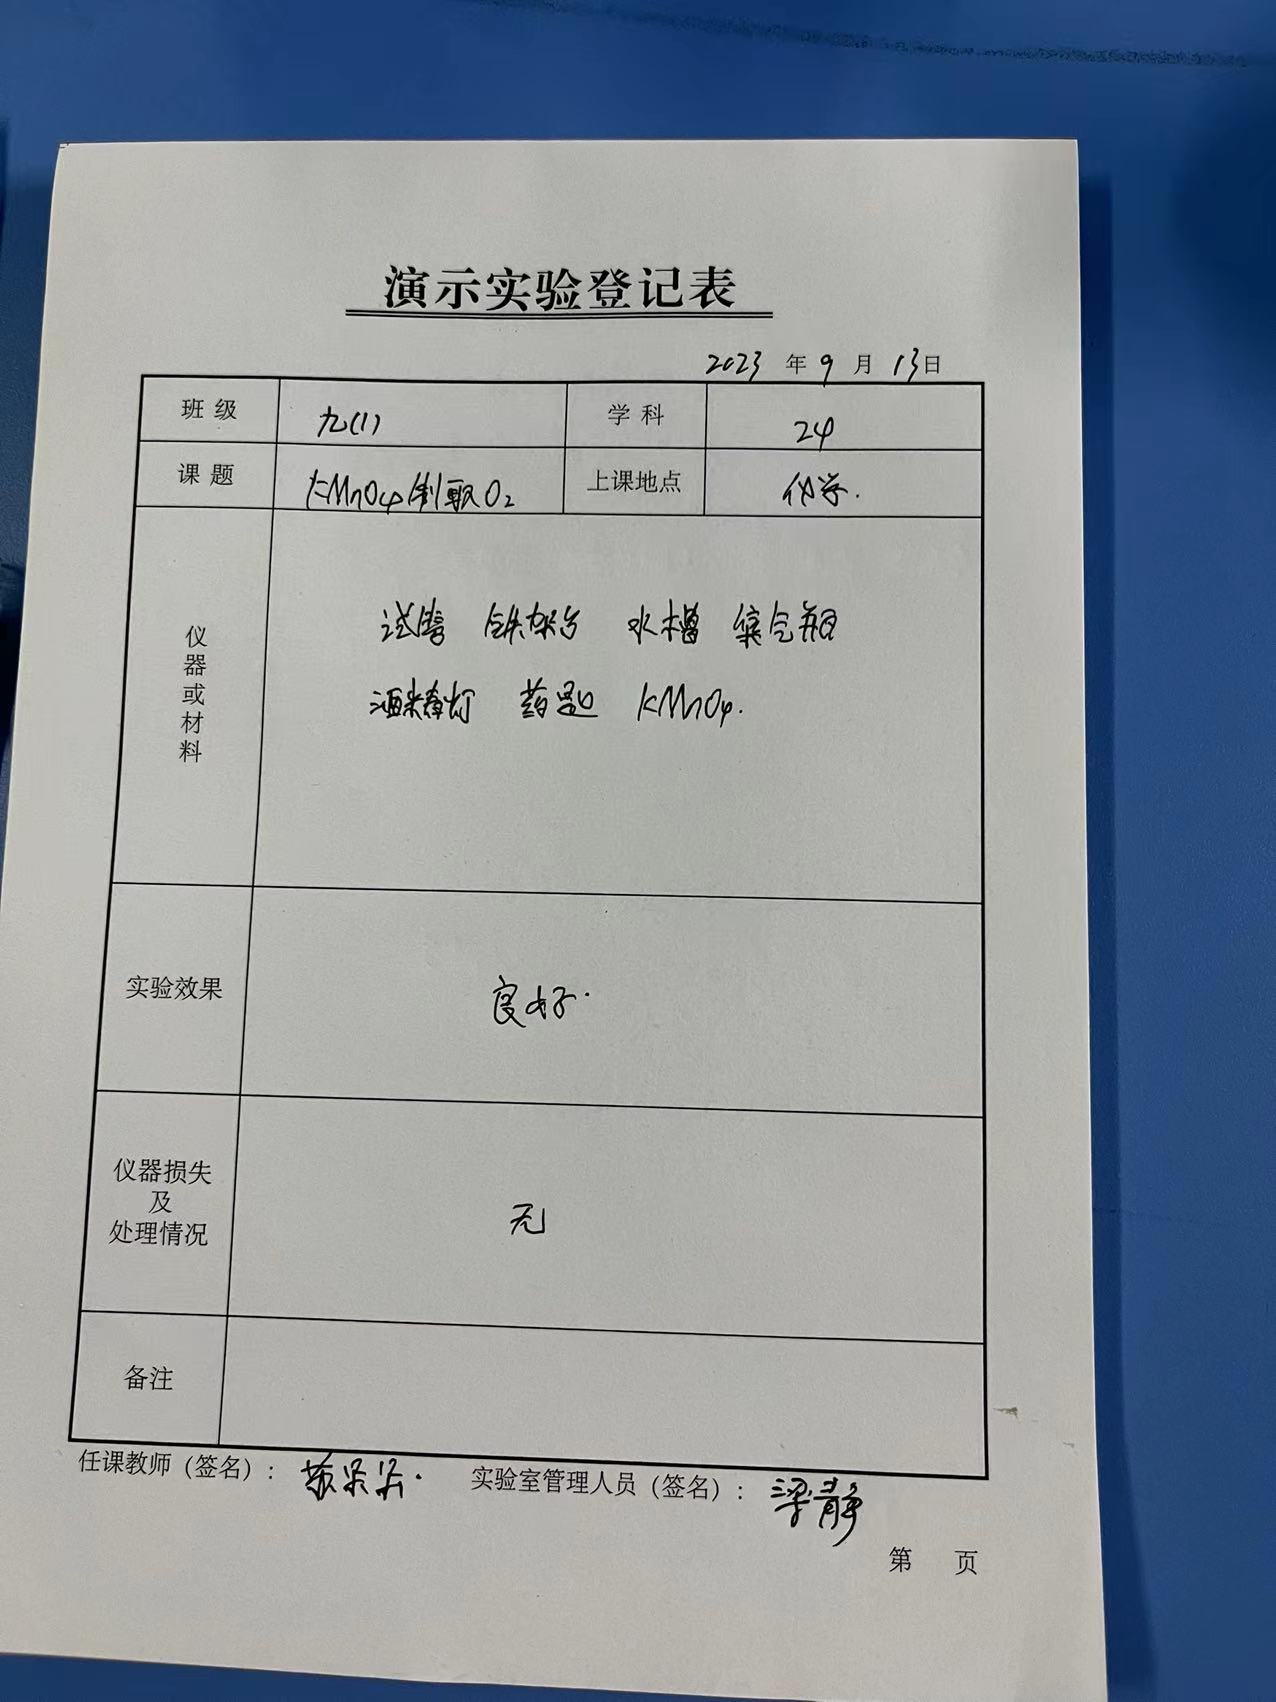 演示实验登记表
2023 年 9 月 13日
班级 九(1) 学科 24
课题 KMnO4制取O2 上课地点 化学.
仪器或材料
试管 铁架台 水槽 集气瓶
酒精灯 药匙 KMnO4.
实验效果 良好.
仪器损失
及
处理情况
无
备注
任课教师（签名）： 实验室管理人员（签名）： 梁静
第 页